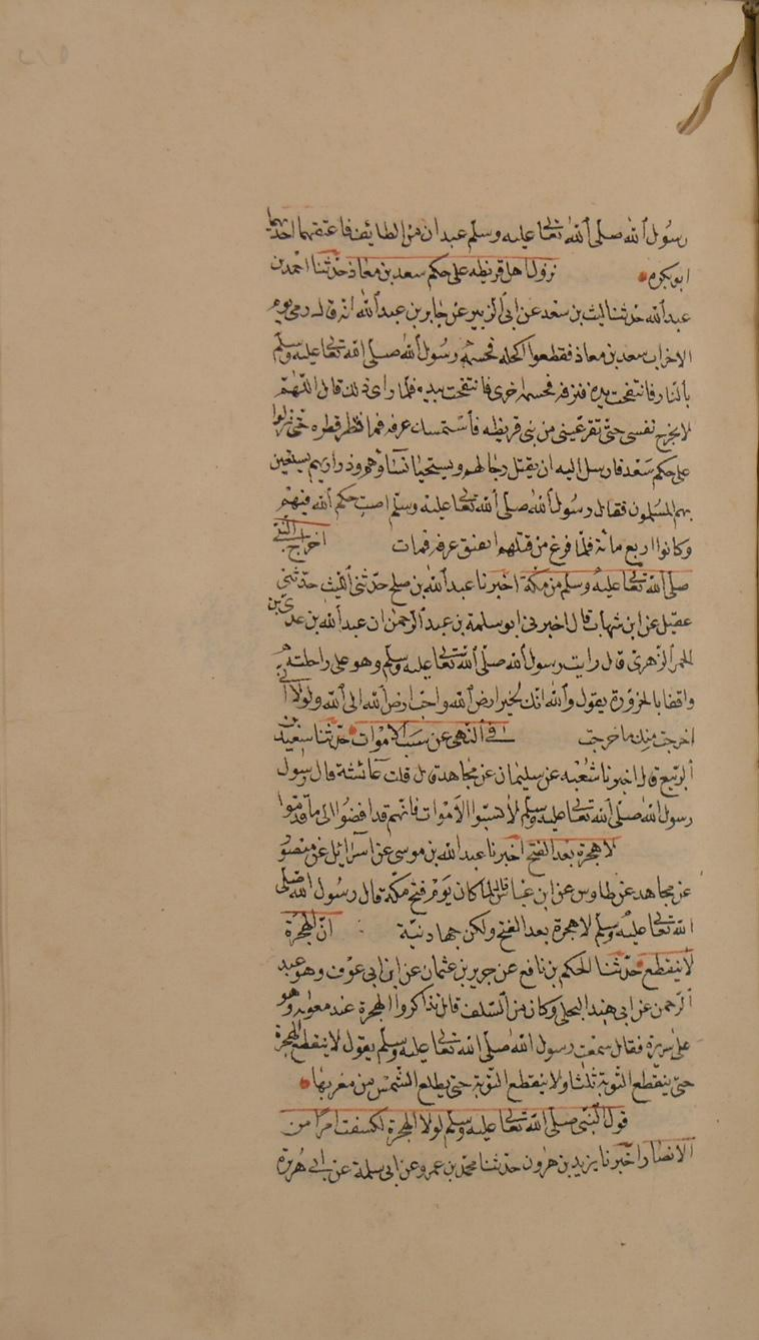 رسُول ٱلله صلّى ٱلله تعالى عليه وسلّم عبدان من الطائف فاعتقهما احدهما
ابو بكرة نزول اهل قريظة على حكم سعد بن معاذ حدّثنا احمد بن
عبد ٱلله حدثنا ليث بن سعد عن ابى ٱلزبير عن جابر بن عبد ٱلله انه قال رمى يوم
الاحزاب سعد بن معاذ فقطعوا اكحله فحسمه رسُول ٱلله صلّى الله تعالى عليه وسلّم
بالنار فانتفخت يده فنزفه فحسمه اخرى فانتفخت يده فلما راى ذلك قال اللّهمّ
لا تخرج نفسى حتّى تقر عينى من بنى قريظه فاستمسك عرقه فما قطر قطره حتى نزلوا
على حكم سَعْد فارسل اليه ان يقتل رجالهم ويستحيا نساؤهم وذراريهم يستعين
بهم المسلمون فقال رسُول ٱلله صلّى ٱلله تعالى عليه وسلّم اصبت حكم ٱلله فيهم
وكانوا اربع مائة فلمّا فرغ من قتلهم انفتق عرقه فمات اخراج النّبى
صلى الله تعالى عليه وسلم من مكّة اخبرنا عبد ٱلله بن صلح حدّثنى ٱلليث حدّثنى
عقيل عن ابن شهاب قال اخبرنى ابو سلمة بن عبد ٱلرحمن ان عبد ٱلله بن عدى بن
الحمرا ٱلزهرى قال رايت رسول ٱلله صلّى ٱلله تعالى عليه وسلّم وهو على راحلته
واقفا بالحزورة يقول وٱلله انك لخير ارض ٱلله واحب ارض ٱلله الى ٱلله ولولا انى
اخرجت منك ما خرجت فى ٱلنهى عن سَبّ الاموات حدّثنا سعيد بن
ٱلربيع قال اخبرنا شعْبه عن سليمان عن مجاهد قال قلت عائشة قال رسُول
رسول الله صلّى ٱلله تعالى عليه وسلّم لا تسبّوا الاموات فانهم قد افضوا الى ما قدّموا
لا هجرة بعد الفتح اخبرنا عبد الله بن موسى عن اسرائيل عن منصُور
عن مجاهد عن طاوس عن ابن عباس قال لما كان يوم فتح مكّة قال رسُول الله صلّى
الله تعالى عليه وسلّم لا هجرة بعد الفتح ولكن جهاد ونيّة انّ الهجرة
لا تنقطع حدّثنا الحكم بن نافع عن جرير بن عثمان عن ابن ابى عوف وهو عبد
ٱلرّحمن عن ابى هند البجلى وكان من ٱلسّلف قال تذاكروا الهجرة عند معويه وهو
على سريره فقال سمعت رسول الله صلّى الله تعالى عليه وسلّم يقول لا تنقطع الهجرة
حتى ينقطع التوبة ثلاثا ولا ينقطع التوبة حتى يطلع الشمس من مغربها
قول ٱلنبى صلّى ٱلله تعالى عليه وسلّم لولا الهجرة لكنت امرا من
الانصار اخبرنا يزيد بن هرون حدّثنا محمّد بن عمرو عن ابى سلمة عن ابى هُريرة